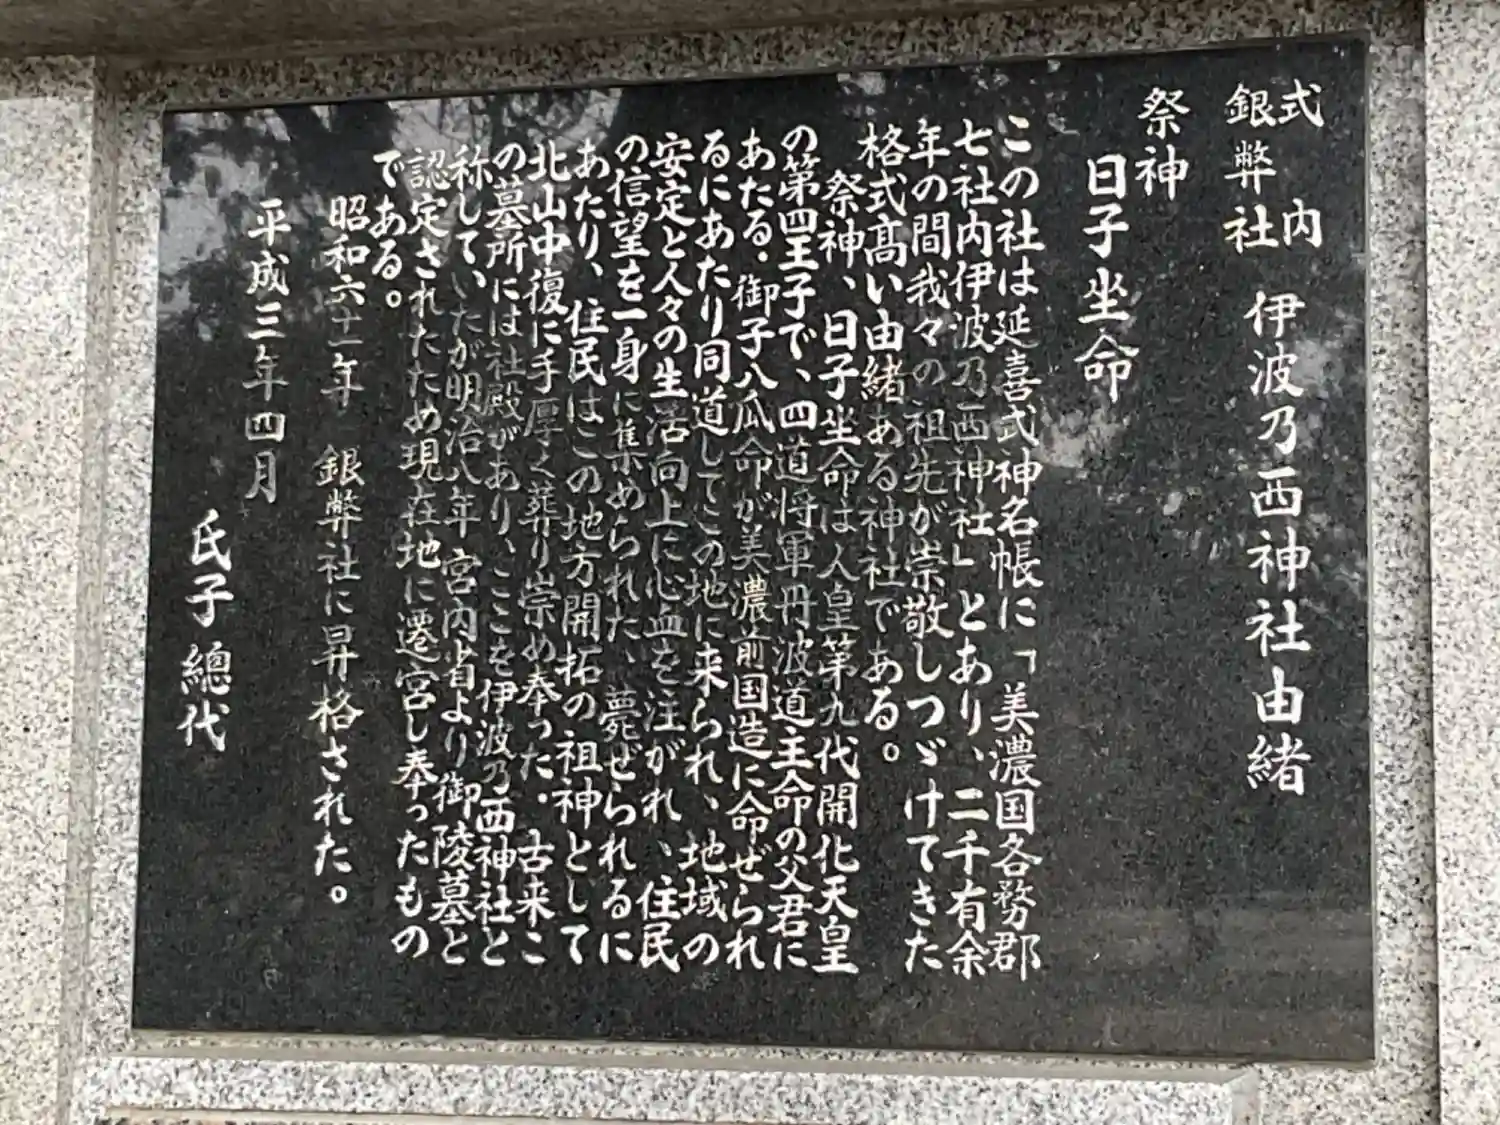 式内
銀弊社
伊波乃西神社由緒
祭神
日子坐命
この社は延喜式神名帳に「美濃国各務郡
七社内伊波乃西神社」とあり、二千有余
年の間我々の祖先が崇敬しつゞけてきた
格式高い由緒ある神社である。
祭神、日子坐命は人皇第九代開化天皇
の第四王子で、四道将軍丹波道主命の父君に
あたる・御子八瓜命が美濃前国造に命ぜられ
るにあたり同道してこの地に来られ、地域の
安定と人々の生活向上に心血を注がれ、住民
の信望を一身に集められた、薨ぜられるに
あたり、住民はこの地方開拓の祖神として
北山中復に手厚く葬り崇め奉った・古来こ
の墓所には社殿があり、ここを伊波乃西神社と
称していたが明治八年宮内省より御陵墓と
認定されたため現在地に遷宮し奉ったもの
である。
昭和六十一年 銀弊社に昇格された。
平成三年四月
氏子總代